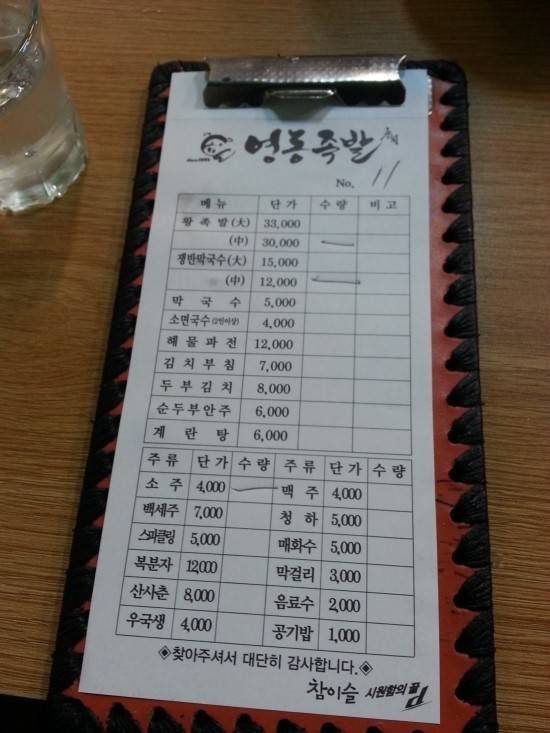 영동족발
No. 11
메뉴 단가 수량 비고
왕족발(大) 33,000
(中) 30,000
쟁반막국수(大) 15,000
(中) 12,000
막국수 5,000
소면국수(2인이상) 4,000
해물파전 12,000
김치부침 7,000
두부김치 8,000
순두부안주 6,000
계란탕 6,000
주류 단가 수량 주류 단가 수량
소주 4,000 맥주 4,000
백세주 7,000 청하 5,000
스파클링 5,000 매화수 5,000
복분자 12,000 막걸리 3,000
산사춘 8,000 음료수 2,000
우국생 4,000 공기밥 1,000
◈찾아주셔서 대단히 감사합니다.◈
참이슬 시원함의 풀 P